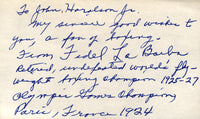 To John, Haralson Jr.
My sincere good wishes to
you, a fan of boxing.
From Fidel La Barba
Retired, undefeated world's fly-
weight boxing champion 1925-27
Olympic Games Champion,
Paris, France 1924